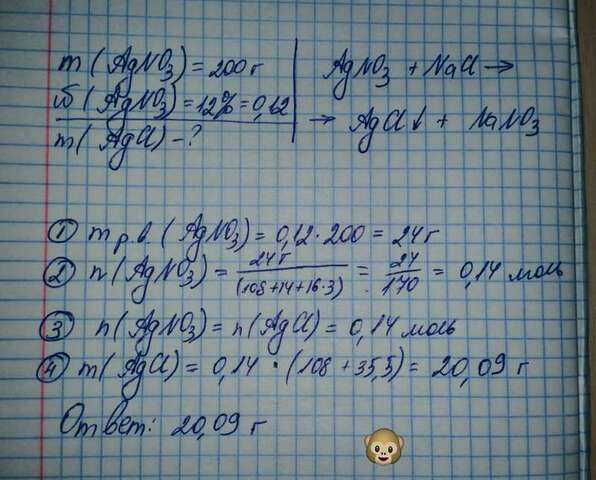 m(AgNO₃) = 200 г
ω(AgNO₃) = 12% = 0,12
m(AgCl) - ?
AgNO₃ + NaCl →
→ AgCl↓ + NaNO₃
① m р.в. (AgNO₃) = 0,12 · 200 = 24 г
② n(AgNO₃) = 24 г / (108+14+16·3) = 24 / 170 = 0,14 моль
③ n(AgNO₃) = n(AgCl) = 0,14 моль
④ m(AgCl) = 0,14 · (108 + 35,5) = 20,09 г
Ответ: 20,09 г